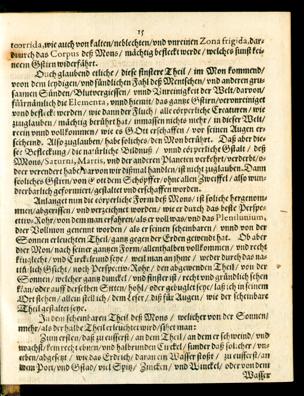 15
torrida, wie auch von kalten/ neblechten/ und unreinen Zona frigida, dar-
durch das Corpus deß Mons/ mächtig befleckt werde/ welches sunst kei-
nem Gstirn widerfährt.
Ouch glaubend etliche/ diese finstere Theil/ im Mon kommend/
von dem leydigen/ und sündlichen Fahl deß Menschen/ und anderen gru-
samen Sünden/ Blutvergiessen/ unnd Unreinigkeit der Welt/ darvon/
fürnämlich die Elementa, unnd hiemit/ das gantz Gstirn/ verunreiniget
unnd befleckt werde/ wie dann der Fluch/ alle cörperliche Creaturen/ wie
zuglauben/ mächtig berührt hat/ unnd alles nichts mehr/ in dieser Welt/
rein unnd vollkommen/ wie es Gott erschaffen/ vor seinen Augen er-
scheind. Also zuglauben/ habe solches/ den Mon berührt. Daß aber die-
ser Befleckung/ die natürliche Bildnuß/ unnd cörperliche Gstalt/ deß
Mons/ Saturni, Martis, und der anderen Planeten verkehrt/ verderbt/ o-
der verendert habe/ darvon wir dismal handlen/ ist nicht zuglauben. Dann
solches Gstirn/ von Gott dem Schöpffer/ ohne allen Zweiffel/ also wun-
derbarlich geformiert/ gestaltet und erschaffen worden.
Anlanget nun die cörperliche Form deß Mons/ ist solche hergenom-
men/ abgerissen/ und verzeichnet worden/ wie er durch das beste Perspe-
ctiv-Rohr/ von dem man erfahren/ als er voll was/ und das Plenilunium,
oder Vollmon genennt worden/ als er seinen scheinbaren/ unnd von der
Sonnen erleuchten Theil/ gantz gegen der Erden gewendt hat. Ob aber
der Mon/ nach seiner gantzen Form/ allenthalben vollkommen/ und recht
kuglecht/ und Circkelrund seye/ weil man an ihme/ weder durch das na-
türlich Gsicht/ noch Perspectiv-Rohr/ den abgewendten Theil/ von der
Sonnen/ welcher gantz dunckel/ und finster ist/ recht und gründlich sehen
kan/ oder auff dem selben Sitten/ hohl/ oder gebuglet seye/ laß ich in seinem
Ort stehen/ allein stell ich/ dem Leser/ diß für Augen/ wie der scheinbare
Theil gestaltet seye.
In dem scheinbaren Theil deß Mons/ welcher von der Sonnen/
mehr/ als der halbe Theil erleuchtet wird/ sihet man:
Zum ersten/ daß zu eusserst/ an dem Theil/ an dem er schwind/ und
wachst/ kein rechter und halbrunden Circkel/ sunder daß solcher/ un-
eben/ abgesetzt/ wie das Erdrich/ daran ein Wasser stoßt/ zu eusserst/ an
dem Port/ und Gstad/ viel Spitz/ Zincken/ und Winckel/ oder von dem
Wasser